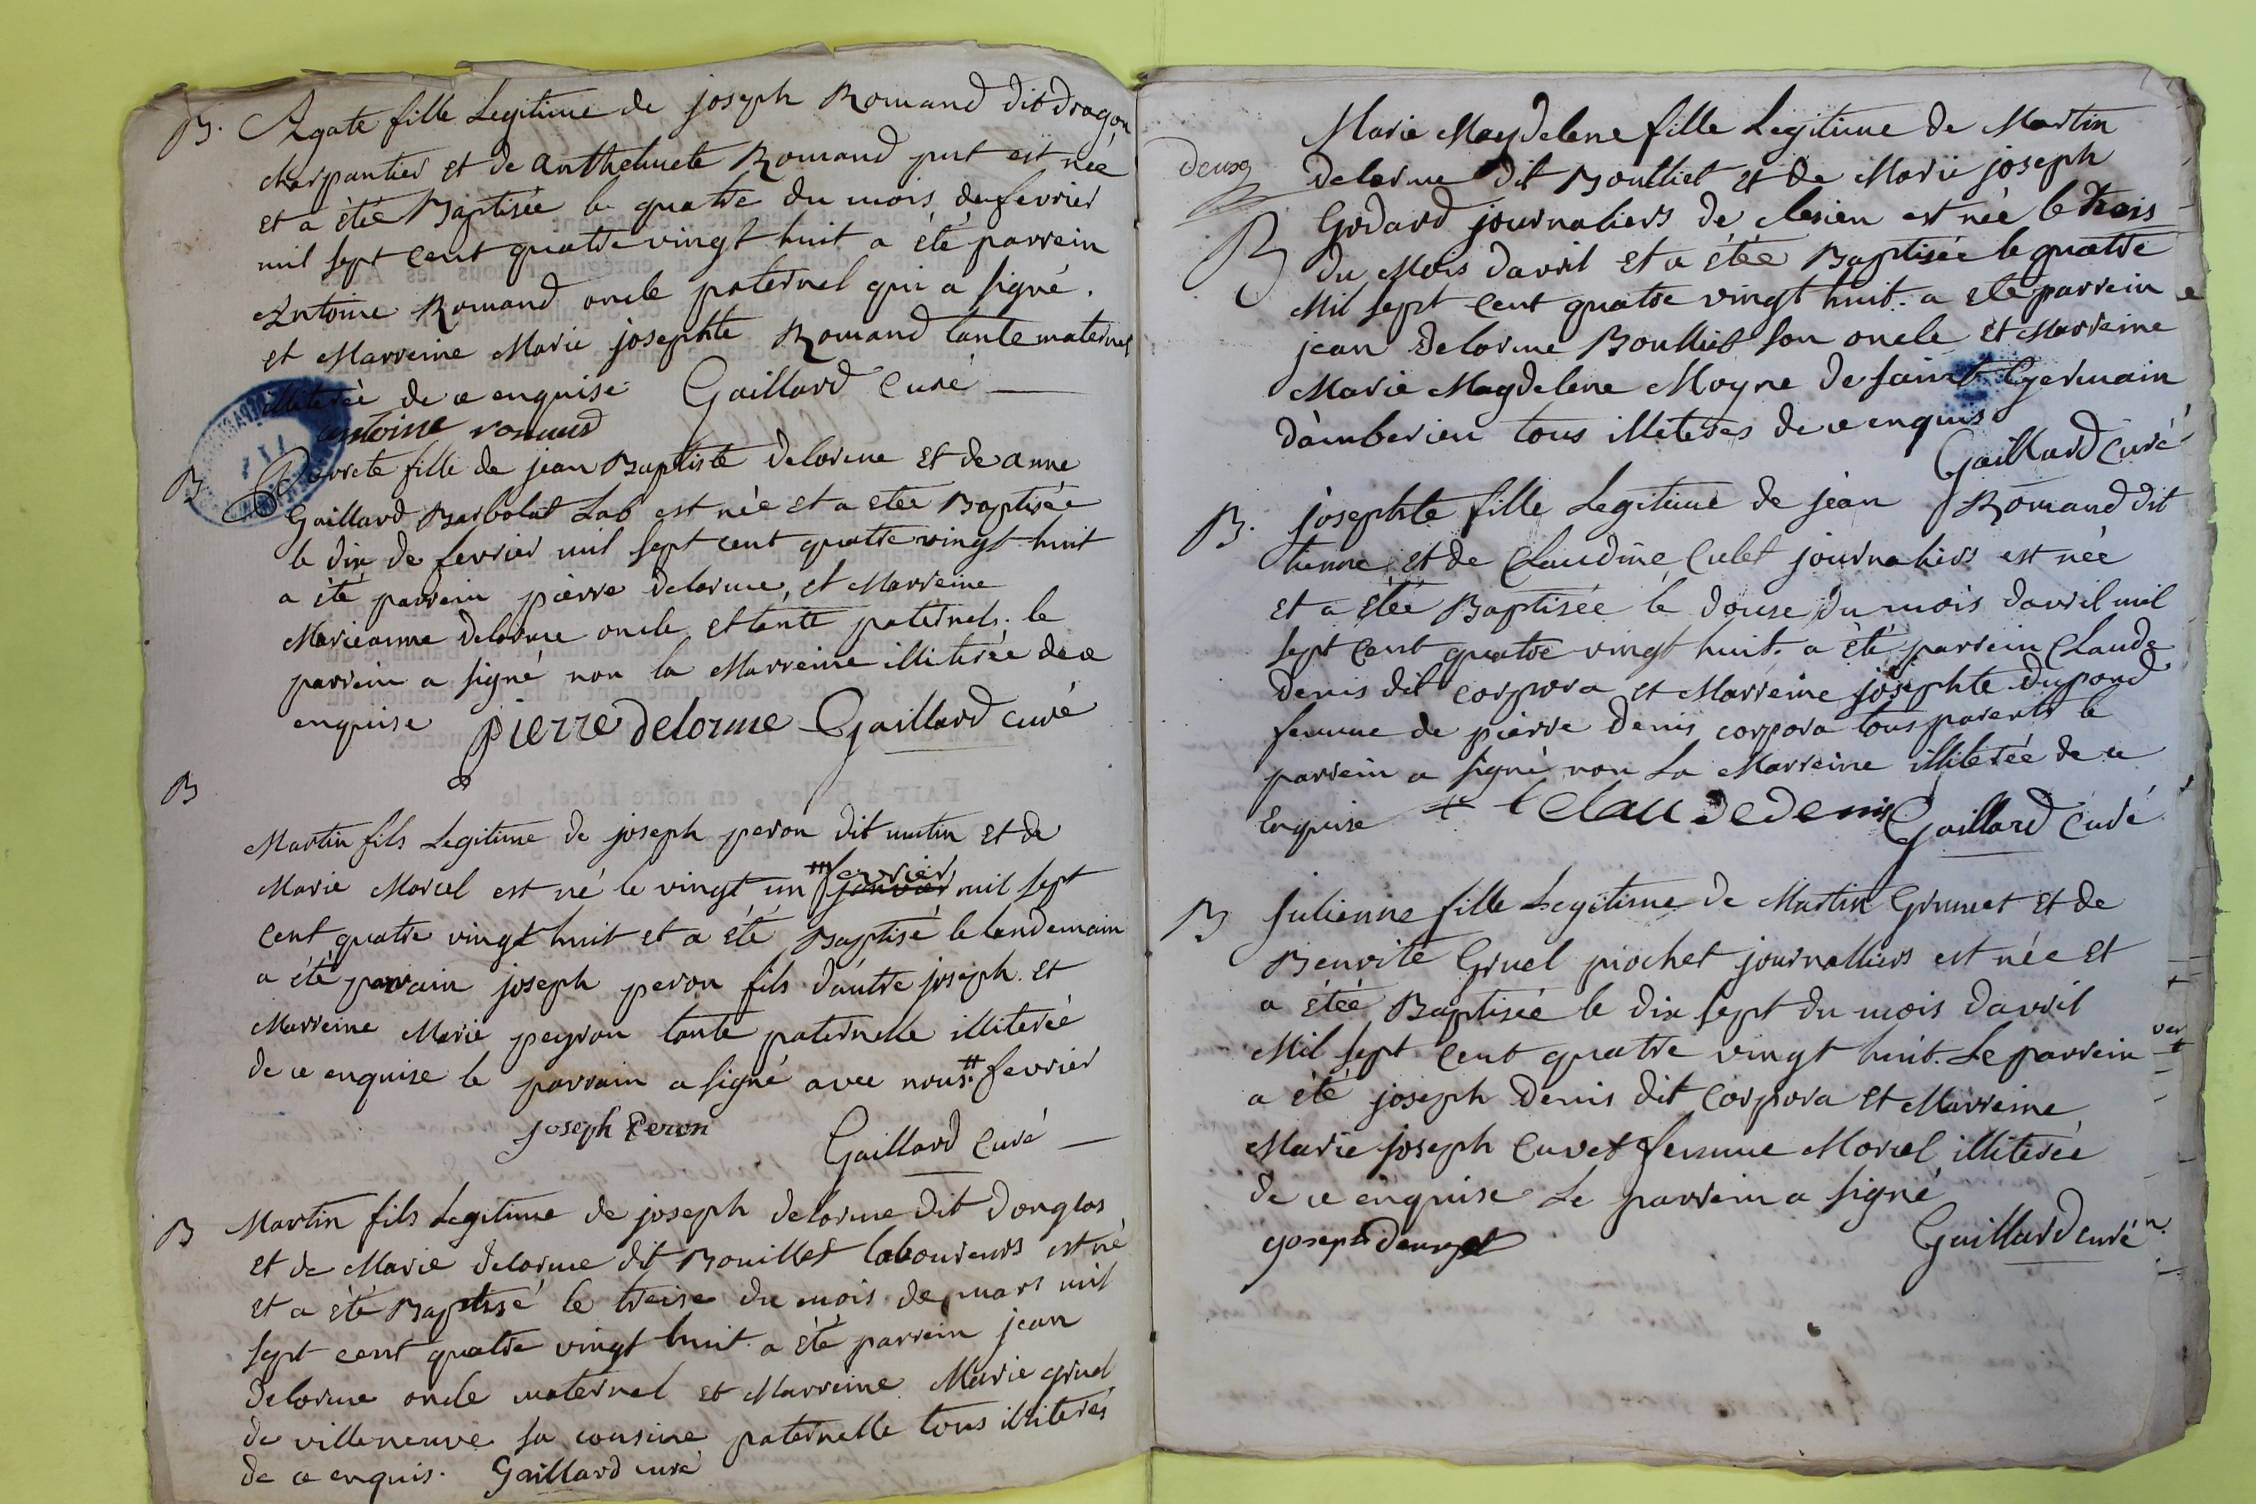 B. Agate fille Legitime de joseph Romand dit dragon
charpantier et de anthelmete Romand put est née
et a étée Baptisée le quatre du mois de fevrier
mil sept cent quatre vingt huit a été parrein
Antoine Romand oncle paternel qui a signé.
et Marreine Marie josephte Romand tante maternel
illiterée de ce enquise Gaillard curé
antoine romand
B Pierrete fille de jean Baptiste delorme et de anne
Gaillard Barbolat Lab est née et a étée Baptisée
le dix de fevrier mil sept cent quatre vingt huit
a été parrein pierre delorme, et Marreine
Marieanne delorme oncle et tante paternels. le
parrein a signé non la Marreine illiterée de ce
enquise pierre delorme Gaillard curé
B
Martin fils Legitime de joseph peron dit mutin et de
Marie Morcel est né le vingt un fevrier janvier mil sept
cent quatre vingt huit et a été Baptisé le lendemain
a été parrain joseph peron fils d'autre joseph et
Marreine Marie peyron tante paternelle illiterée
de ce enquise le parrain a signé avec nous. # fevrier
joseph Peron
Gaillard curé
B Martin fils Legitime de joseph delorme dit douglas
et de Marie delorme dit Bouillet laboureurs est né
et a été Baptisé le treise du mois de mars mil
sept cent quatre vingt huit. a été parrein jean
delorme oncle maternel et Marreine Marie gruel
de villeneuve sa cousine paternelle tous illiterés
de ce enquis. Gaillard curé
Marie Magdelene fille Legitime de Martin
deux
delorme dit Boulliet et de Marie joseph
B Godard journaliers de est née le trois
du Mois davril et a étée Baptisée le quatre
Mil sept cent quatre vingt huit. a été parrein
jean delorme Boulliet son oncle et Marreine
Marie Magdelene Moyne de saint Germain
d'amberieu tous illiterés de ce enquis
Gaillard curé
B. josephte fille Legitime de jean Romand dit
tienne et de Claudine Culet journaliers est née
et a étée Baptisée le douse du mois davril mil
sept cent quatre vingt huit. a été parrein Claude
denis dit corpora et Marreine josephte dupond
femme de pierre denis corpora tous parents le
parrein a signé non la Marreine illiterée de ce
Enquise claudedenis Gaillard curé
B Julienne fille Legitime de Martin Grumet et de
Benoite Gruel piochet journalliers est née et
a étée Baptisée le dix sept du mois davril
Mil sept cent quatre vingt huit. Le parrein
a été joseph denis dit corpora et Marreine
Marie joseph Cuvet femme Morcel illiterée
de ce enquise Le parrein a signé
Gaillard curé